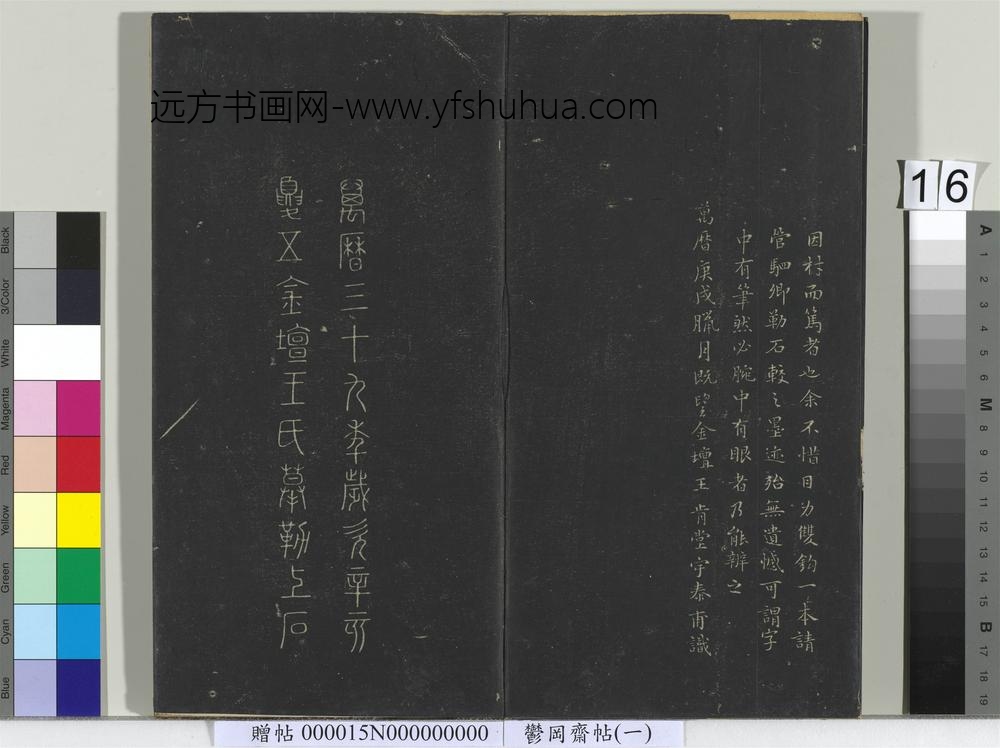 远方书画网-www.yfshuhua.com
因材而篤者也余不惜目力雙鈎一本請
管駟卿勒石較之墨迹殆無遺憾可謂字
中有筆然必腕中有眼者乃能辨之
萬曆庚戌臘月既望金壇王肯堂宇泰甫識
萬曆三十九年歲次辛亥
夏五金壇王氏摹勒上石
16
Black
3/Color
White
Magenta
Red
Yellow
Green
Cyan
Blue
A 1 2 3 4 5 6 M 8 9 10 11 12 13 14 15 B 17 18 19
贈帖 000015N000000000 鬱岡齋帖(一)